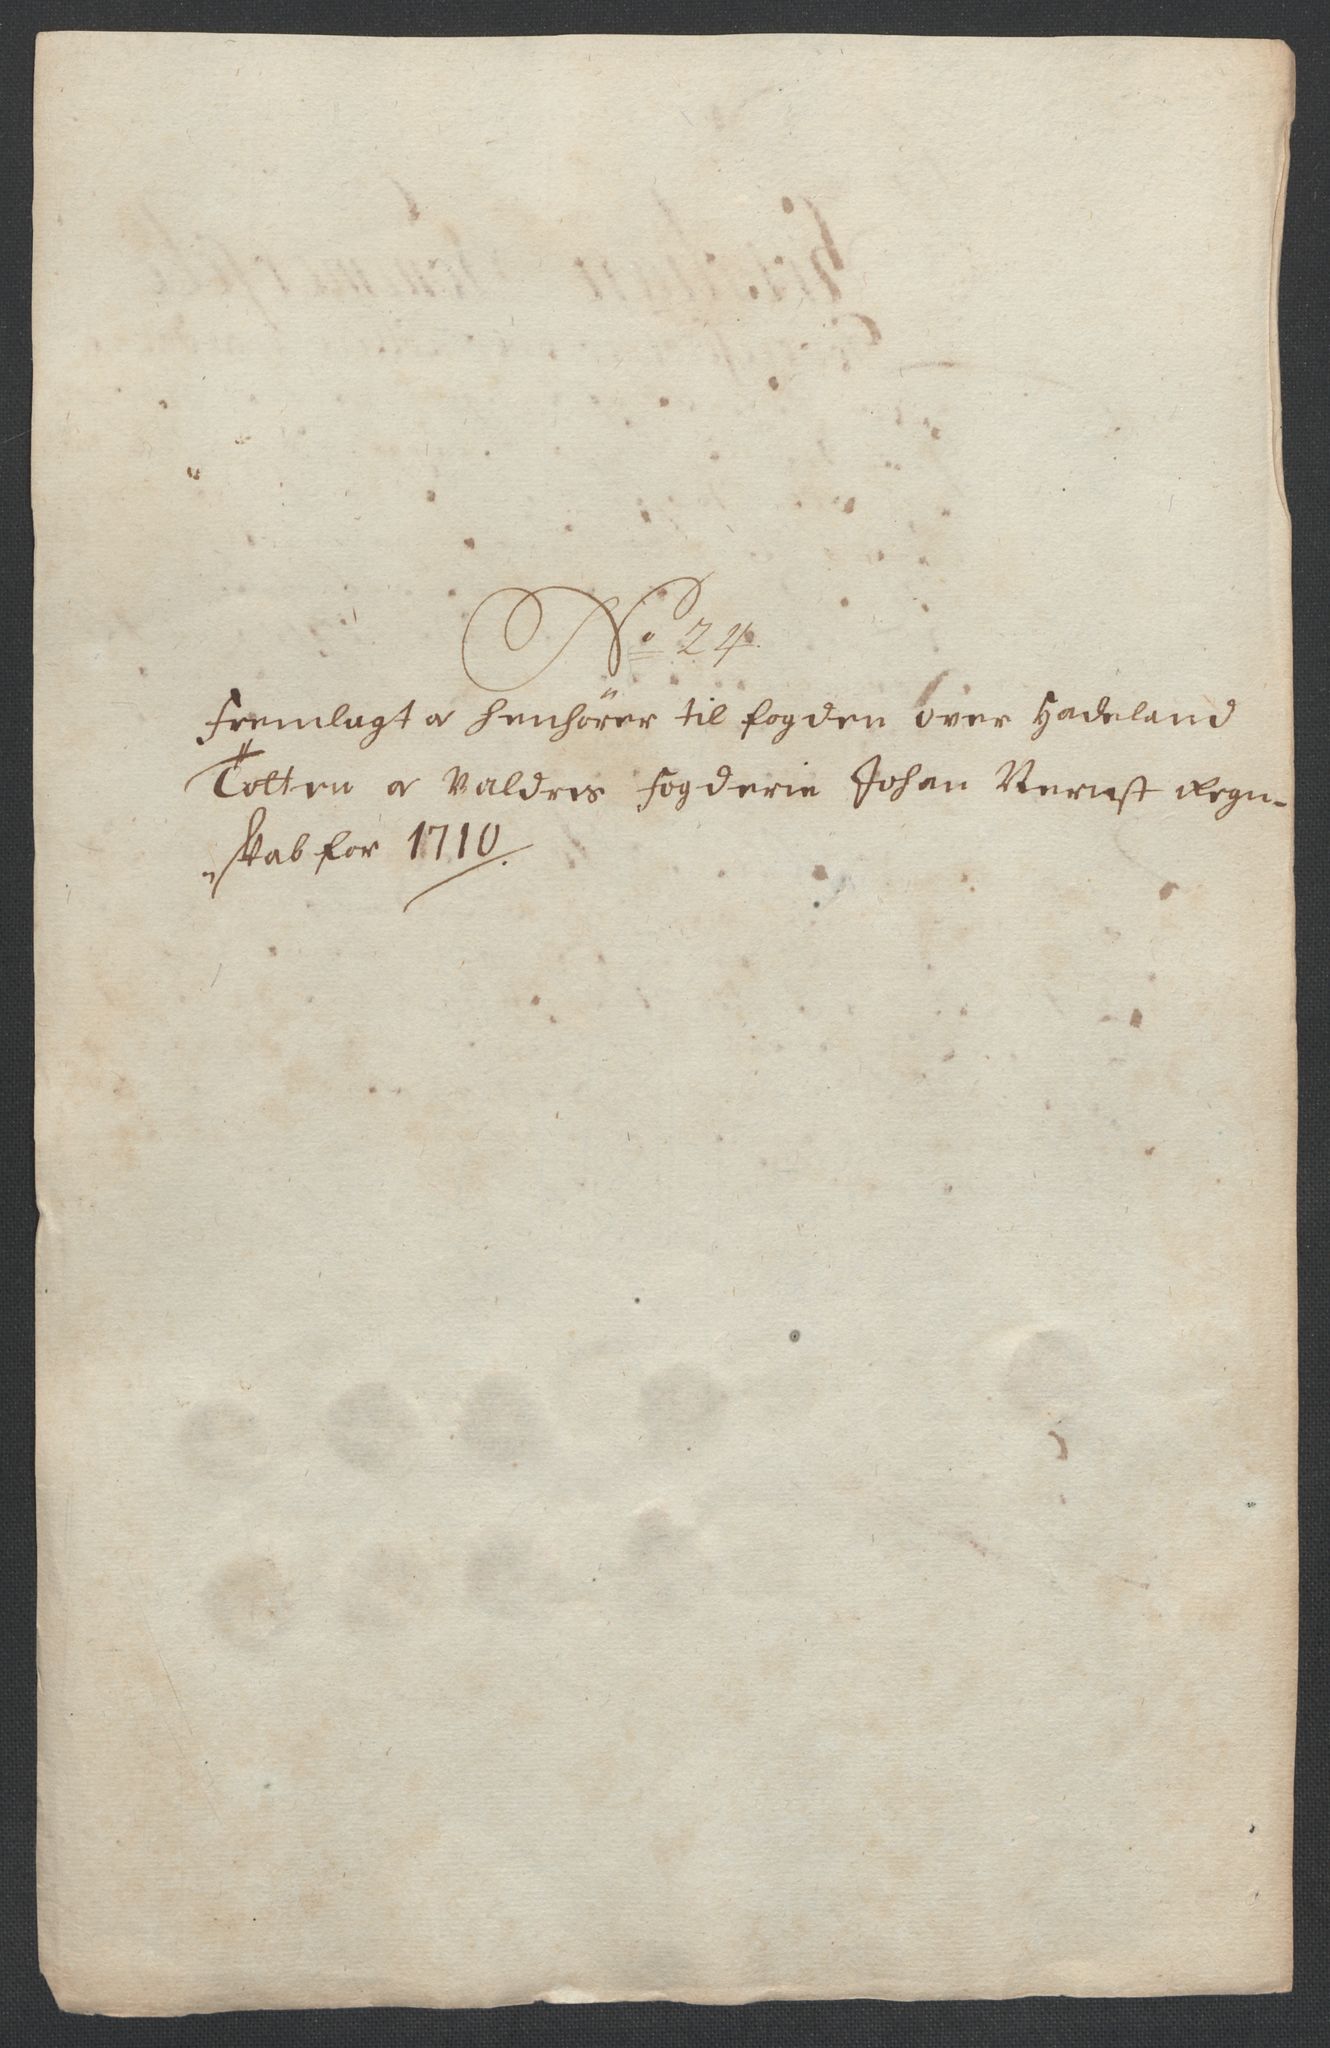 No 24
Fremlagt og henhörer til fogden over Hadeland
Totten og Valdres fogderie Johan Vernst Regn-
skab for 1710.